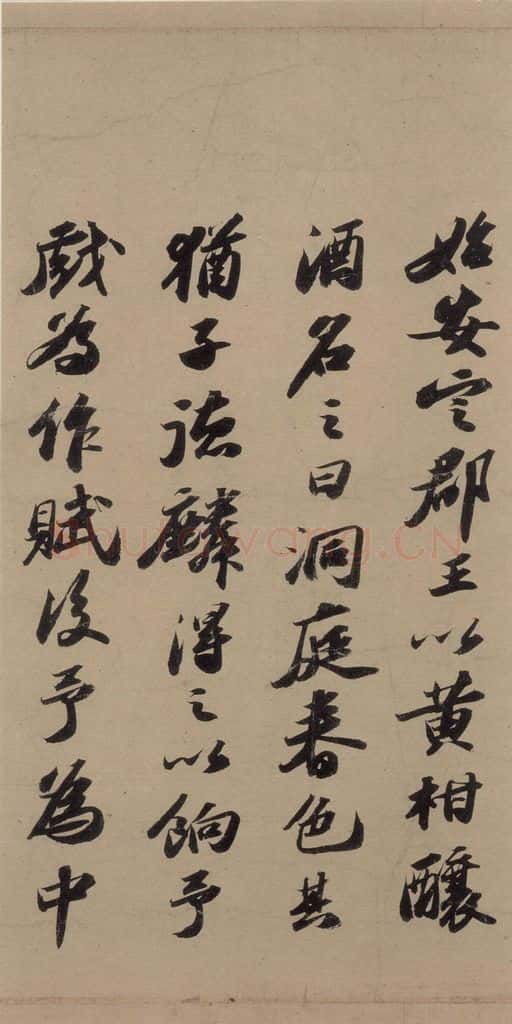 始安定郡王以黄柑釀
酒名之曰洞庭春色其
猶子德麟得之以餉予
戲為作賦後予為中
Shufawang.CN